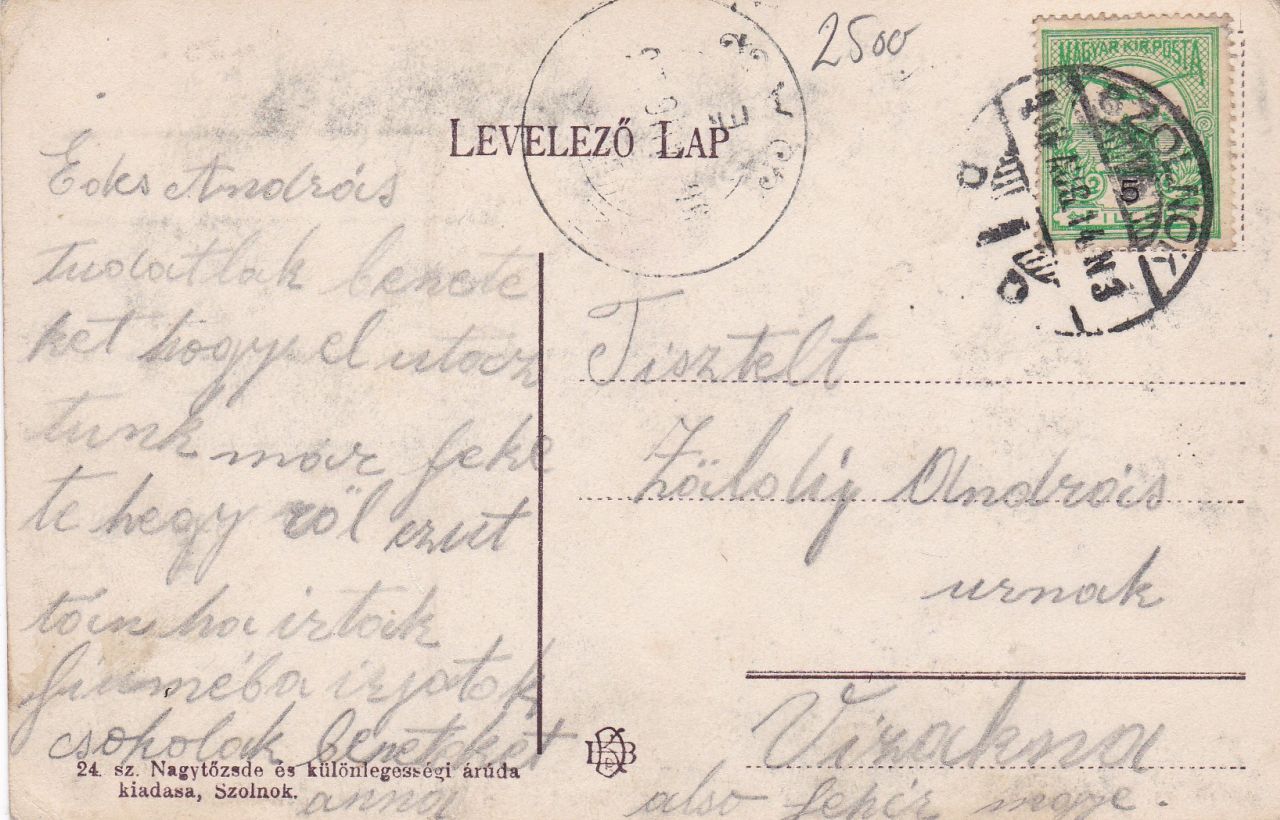 2500
MAGYAR KIR. POSTA
SZOLNOK
LEVELEZŐ LAP
Edes András
tudatlak benete
ket hogy el utaz
tunk már feke
te hegy ről ezut
tán ha irtak
fiuméba irjatok
csokolak beneteket
anna
Tisztelt
András
urnak
Vizakna
also fehir mgye.
24. sz. Nagytőzsde és különlegességi árúda
kiadasa, Szolnok.